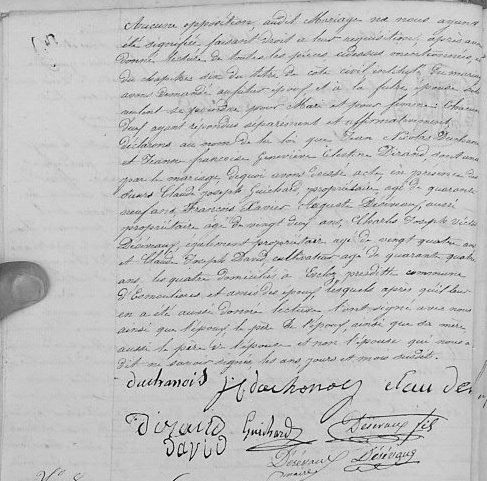 Aucune opposition audit Mariage ne nous ayant
été signifiée, faisant droit à leur requisition, après avoir
donné lecture de toutes les pièces cidessus mentionnées, et
du chapitre six du titre de code civil intitulé du mariage
avons demandé au futur époux et à la future épouse s'ils
veulent se prendre pour Mari et pour femme. Chacun
d'eux ayant répondu séparément et affirmativement
déclarons au nom de la loi que Jean Nicolas
et Jeanne françoise Geneviève Célestine Dirand sont unis
par le mariage, dequoi avons dressé acte, en presence des
sieurs Claude Joseph Guichard propriétaire, agé de quarante
neuf ans, François Xavier Auguste Desiveaux, aussi
propriétaire agé de vingt neuf ans, Charles Joseph
Désiveaux, également propriétaire agé de vingt quatre ans
et Claude Joseph David cultivateur agé de quarante quatre
ans, les quatre domiciliés à preditte commune
et amis des époux, lesquels après qu'il leur
en a été aussi donné lecture l'ont signé avec nous
ainsi que l'époux, le père de l'époux, ainsi que sa mère
aussi le père de l'épouse et non l'épouse qui nous a
dit ne savoir signer, les an, jours et mois susdit.
duchanois clau de
Dirand Guichard fils
David
maire